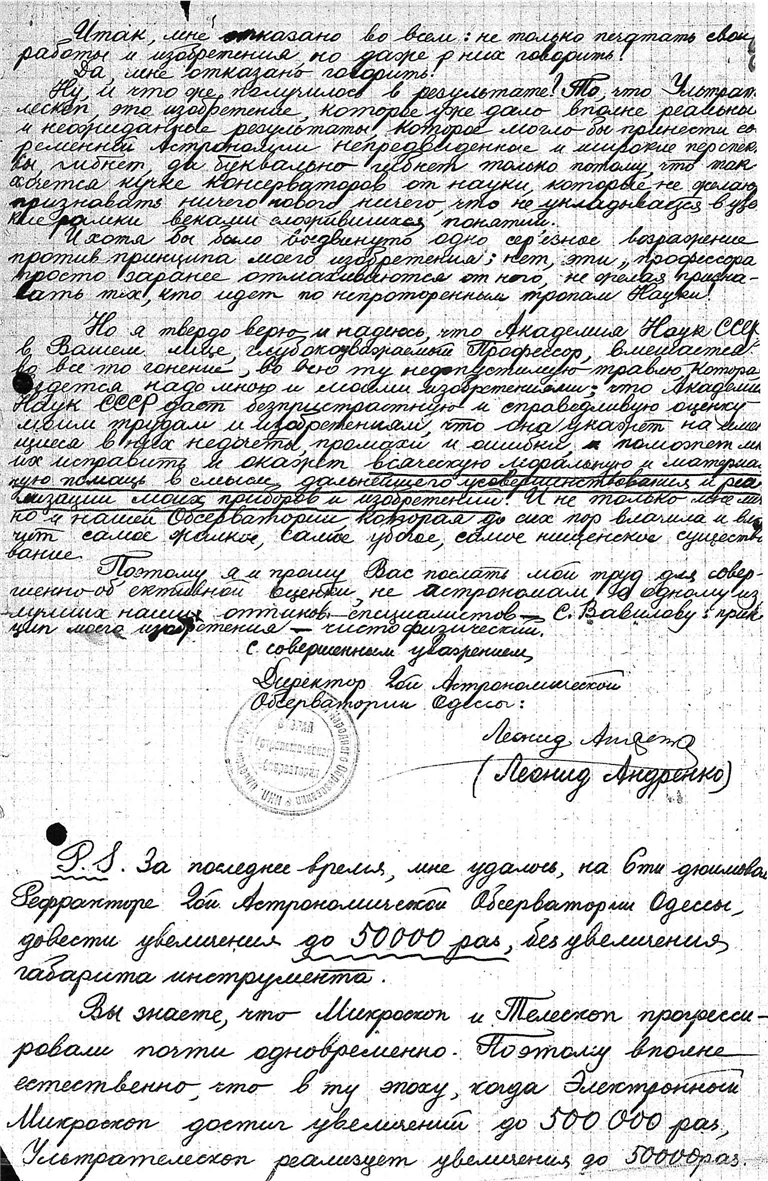 Итак, мне отказано во всем: не только печатать свои
работы и изобретения, но даже о них говорить!
Да, мне отказано говорить!
Ну, и что же получилось в результате? То, что Ультрате
лескоп, это изобретение, которое уже дало вполне реальны
и неожиданные результаты, которое могло бы принести со
ременной Астрономии непредвиденные и широкие перспек
вы, гибнет, да буквально гибнет только потому, что так
хочется кучке консерваторов от науки, которые не желаю
признавать ничего нового ничего, что не укладывается в уз
кие рамки веками сложившихся понятий.
И хотя бы было выдвинуто одно серьезное возражение
против принципа моего изобретения; нет, эти „профессора
просто заранее отмахиваются от него, не желая призна-
вать тех, кто идет по непроторенным тропам Науки!
Но я твердо верю и надеюсь, что Академия Наук СССР
в Вашем лице, глубокоуважаемый Профессор, вмешается
во все то гонение, во всю ту недопустимую травлю, котора
ведется надо мною и моими изобретениями; что Академи
Наук СССР даст безпристрастную и справедливую оценку
моим трудам и изобретениям, что она укажет на имею
щиеся в них недочеты, промахи и ошибки, и поможет мн
их исправить и окажет всяческую моральную и материа
ную помощь в смысле дальнейшего усовершенствования и реа
лизации моих приборов и изобретений! И не только мне ли
но и нашей Обсерватории, которая до сих пор влачила и вла
чит самое жалкое, самое убогое, самое нищенское существо
вание.
Поэтому я и прошу Вас послать мой труд для совер-
шенно об'ективной оценки, не астрономам, а одному из
лучших наших оптиков-специалистов — С. Вавилову: прин
цип моего изобретения — чисто физический.
С совершенным уважением,
Директор 2ой Астрономической
Обсерватории Одессы:
Леонид
(Леонид Андренко)
P.S. За последнее время, мне удалось, на 6ти дюймовом
Рефракторе 2ой Астрономической Обсерватории Одессы,
довести увеличения до 50000 раз, без увеличения
габарита инструмента.
Вы знаете, что Микроскоп и Телескоп прогресси-
ровали почти одновременно. Поэтому вполне
естественно, что в ту эпоху, когда Электронный
Микроскоп достиг увеличений до 500 000 раз,
Ультрателескоп реализует увеличения до 50000 раз.